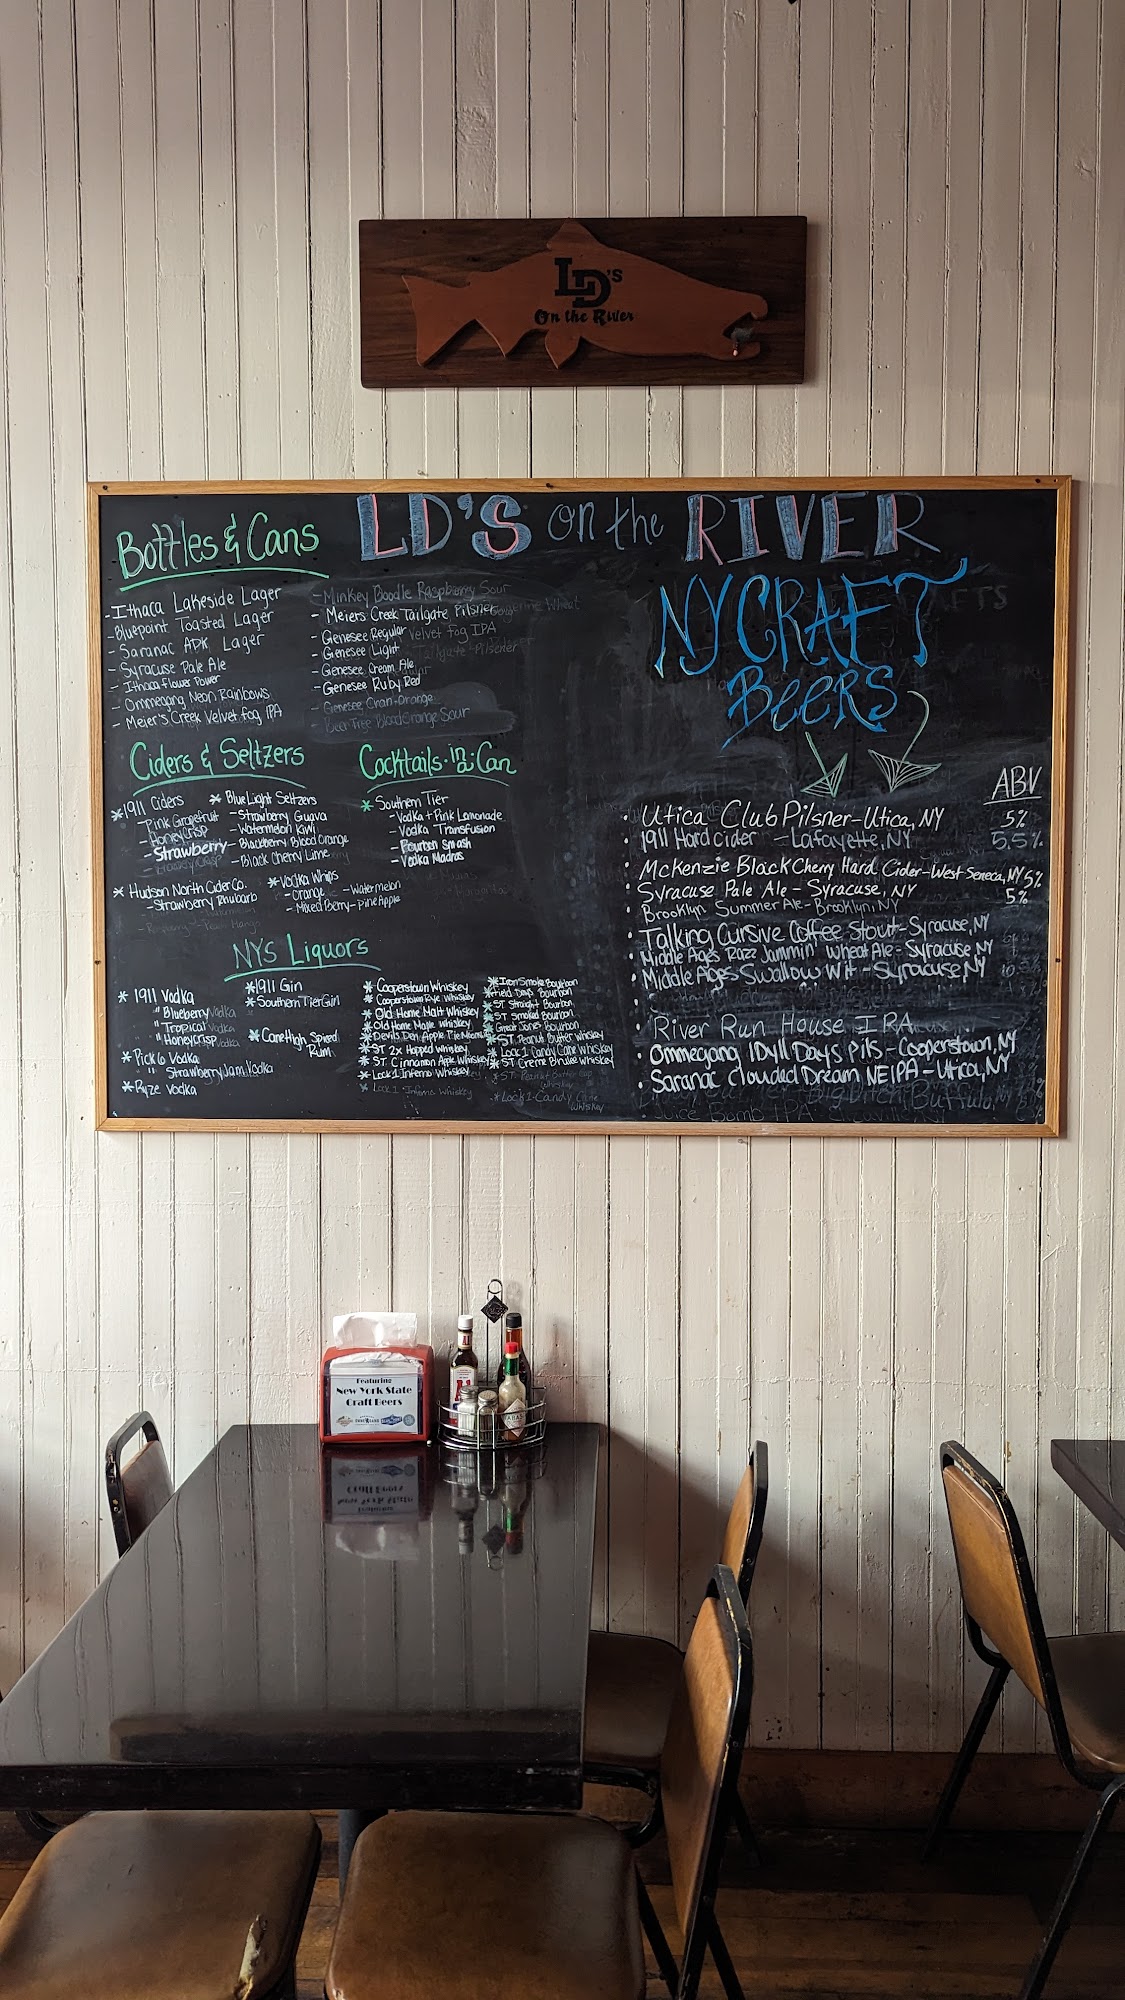 LD's
On the River
LD'S on the RIVER
Bottles & Cans
- Ithaca Lakeside Lager
- Bluepoint Toasted Lager
- Saranac ADK Lager
- Syracuse Pale Ale
- Ithaca Flower Power
- Ommegang Neon Rainbows
- Meier's Creek Velvet Fog IPA
- Minkey Boodle Raspberry Sour
- Meiers Creek Tailgate Pilsner
- Genesee Regular
- Genesee Light
- Genesee Cream Ale
- Genesee Ruby Red
- Genesee Cran-Orange
- Beer Tree Blood Orange Sour
Ciders & Seltzers
* 1911 Ciders
- Pink Grapefruit
- Honey Crisp
- Strawberry
* Hudson North Cider Co.
- Strawberry Rhubarb
* Blue Light Seltzers
- Strawberry Guava
- Watermelon Kiwi
- Blackberry Blood Orange
- Black Cherry Lime
* Vodka Whips
- Orange - Watermelon
- Mixed Berry - Pine Apple
Cocktails-in-a-Can
* Southern Tier
- Vodka + Pink Lemonade
- Vodka Transfusion
- Bourbon Smash
- Vodka Madras
NYS Liquors
* 1911 Vodka
" Blueberry Vodka
" Tropical Vodka
" Honeycrisp Vodka
* Pick 6 Vodka
" " Strawberry Jam Vodka
* Ryze Vodka
* 1911 Gin
* Southern Tier Gin
* CareHigh Spiced
Rum
* Cooperstown Whiskey
* Cooperstown Rye Whiskey
* Old Home Malt Whiskey
* Old Home Maple Whiskey
* Devils Den Apple Pie
* ST 2x Hopped Whiskey
* ST Cinnamon Apple Whiskey
* Lock 1 Inferno Whiskey
Lock 1 Inferno Whiskey
* Iron Smoke Bourbon
* Field Days Bourbon
* ST Straight Bourbon
* ST Smoked Bourbon
* Great Jones Bourbon
* ST Peanut Butter Whiskey
* Lock 1 Candy Cane Whiskey
* ST Creme Brulee Whiskey
* Lock 1-Candy Cane
Whiskey
NY CRAFT
BEERS
ABV
• Utica Club Pilsner - Utica, NY 5%
• 1911 Hard Cider - Lafayette, NY 5.5%
• McKenzie Black Cherry Hard Cider - West Seneca, NY 5%
• Syracuse Pale Ale - Syracuse, NY 5%
• Brooklyn Summer Ale - Brooklyn, NY
• Talking Cursive Coffee Stout - Syracuse, NY
• Middle Ages Razz Jammin' Wheat Ale - Syracuse NY
• Middle Ages Swallow Wit - Syracuse NY
• River Run House IPA
• Ommegang Idyll Days Pils - Cooperstown, NY
• Saranac Clouded Dream NEIPA - Utica, NY
Juice Bomb IPA
Featuring
New York State
Craft Beers
A1
TABASCO